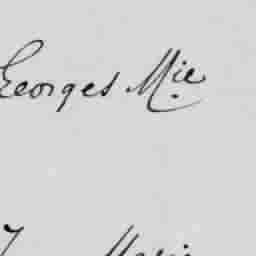 Georges M.ie
Marie